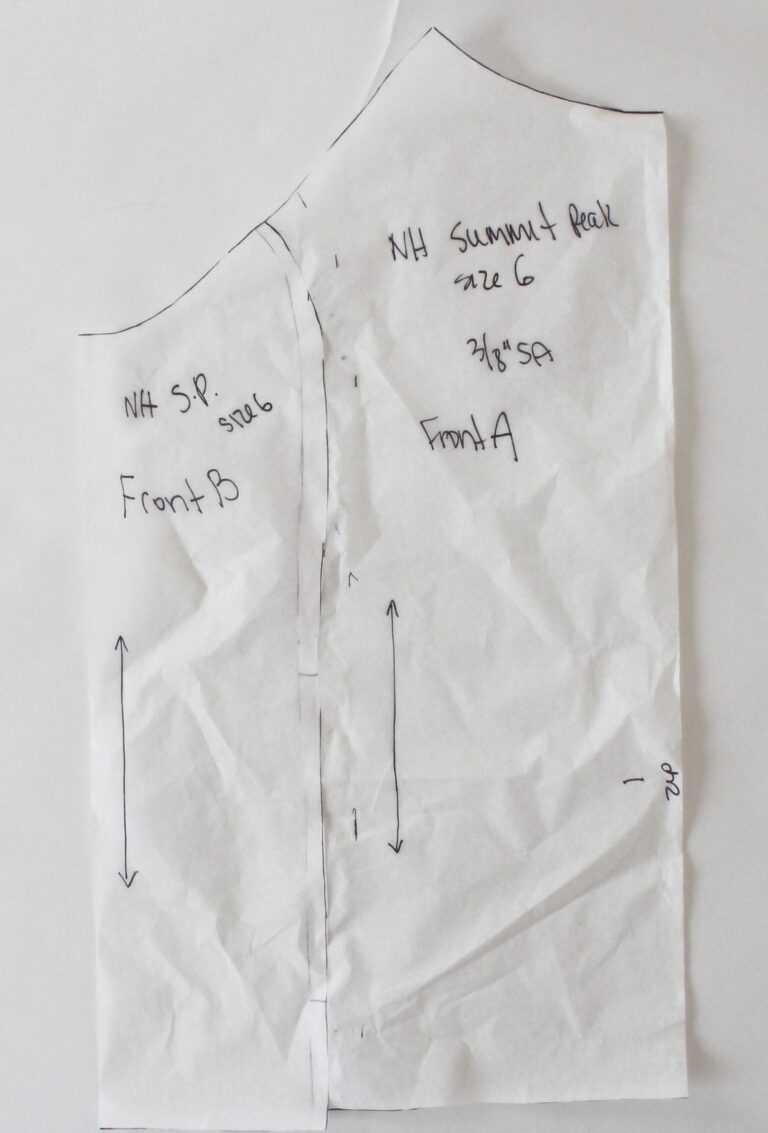 NH Summit Peak
size 6
3/8" SA
Front A
NH S.P.
size 6
Front B